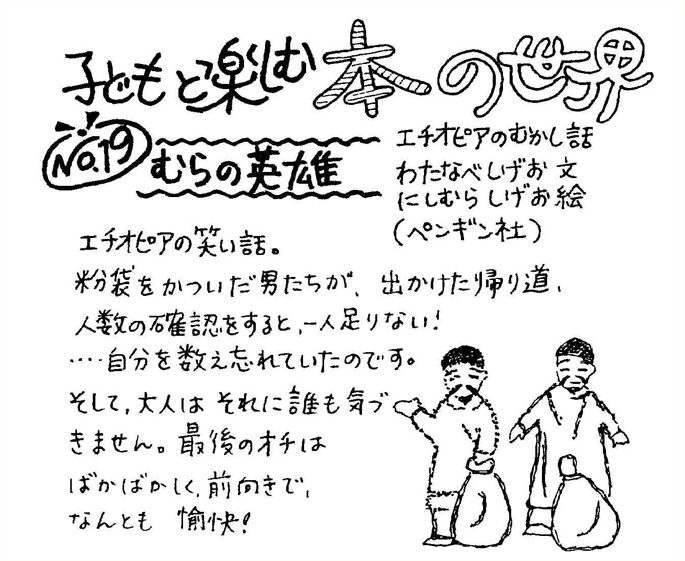 子どもと楽しむ本の世界
No.19
むらの英雄
エチオピアのむかし話
わたなべしげお 文
にしむら しげお 絵
(ペンギン社)
エチオピアの笑い話。
粉袋をかついだ男たちが、出かけた帰り道、
人数の確認をすると、一人足りない!
‥‥自分を数え忘れていたのです。
そして、大人は それに誰も気づ
きません。最後のオチは
ばかばかしく、前向きで、
なんとも 愉快!